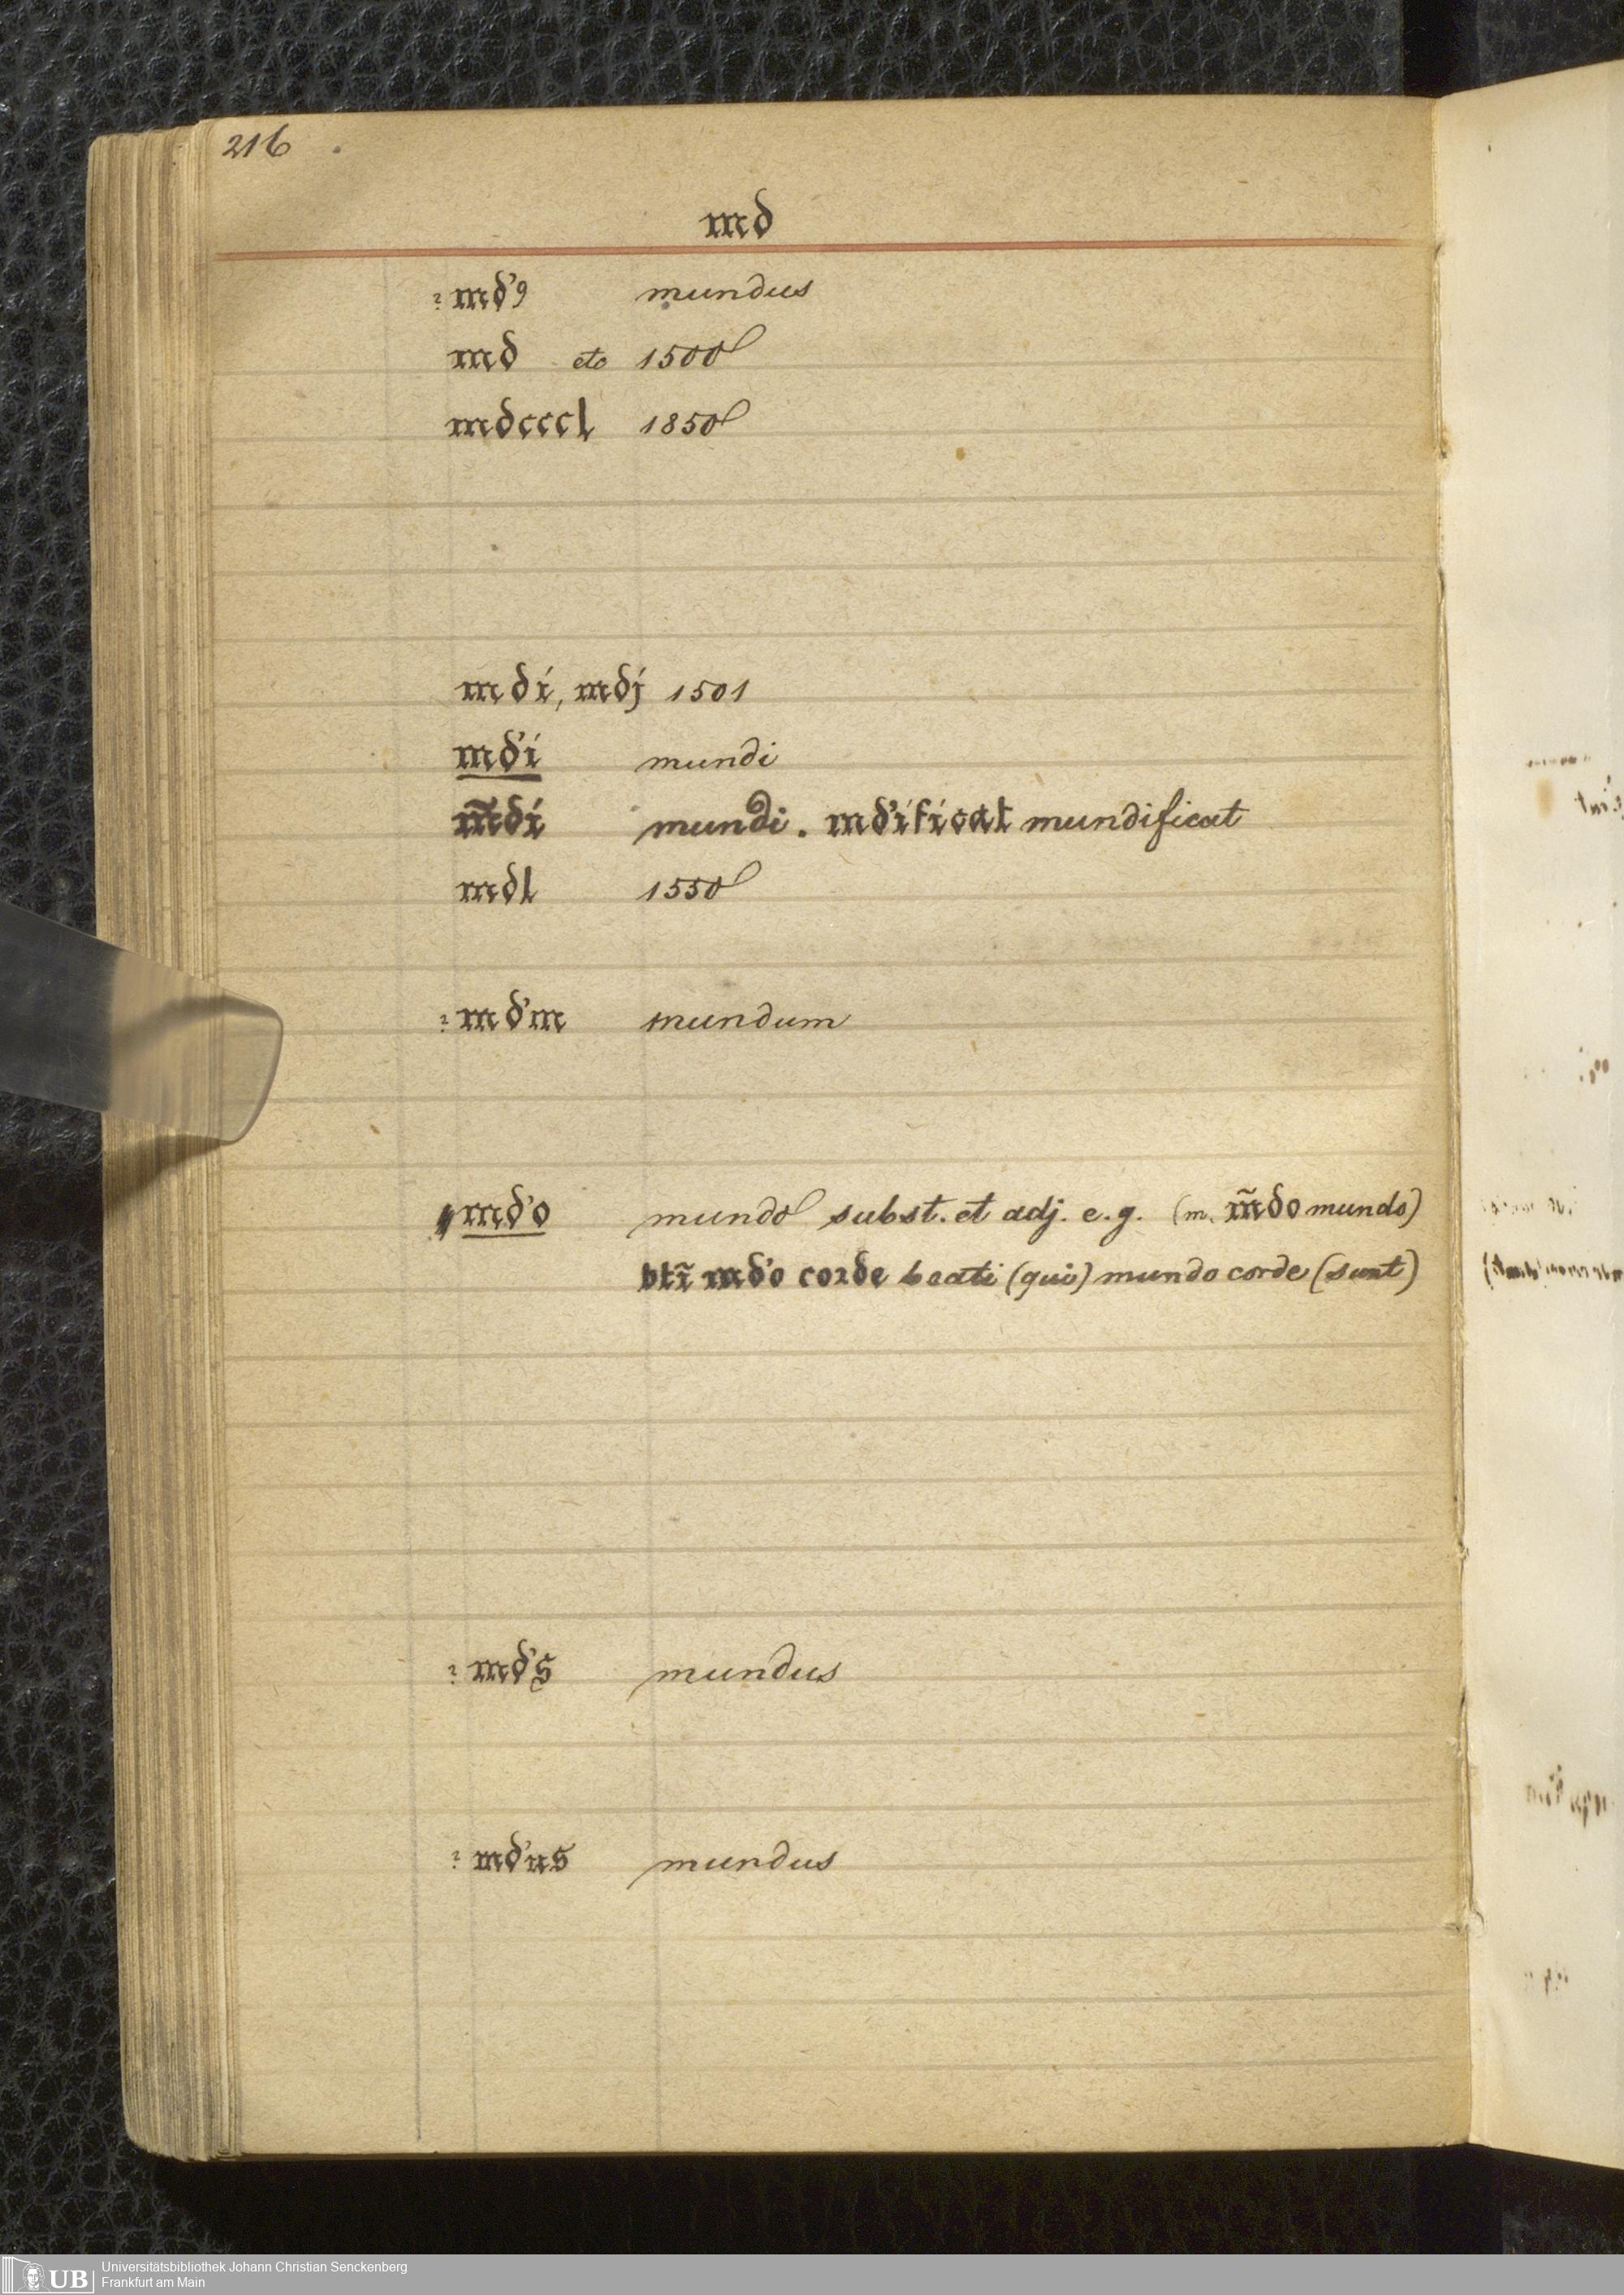 216
md
? md'9 mundus
md etc 1500
mdcccl 1850
mdi, mdj 1501
md'i mundi
m̃di mundi. md'ificat mundificat
mdl 1550
? md'm mundum
md'o mundo subst. et adj. e.g. (m. m̃do mundo)
btĩ md'o corde beati (qui) mundo corde (sunt)
? md's mundus
? md'us mundus
UB Universitätsbibliothek Johann Christian Senckenberg
Frankfurt am Main